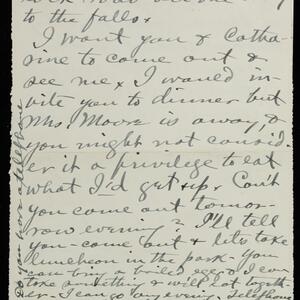 to the falls.
I want you & Catha-
rine to come out &
see me & I would in-
vite you to dinner but
Mrs. Moore is away, &
you might not consid-
er it a privilege to eat
what I'd get up. Can't
you come out tomor-
row evening? I'll tell
you - come out & let's take
luncheon in the park - You
can bring a boiled egg & I can
take something & will eat togeth-
er - I can go any evening - telephone
Do you have a telephone